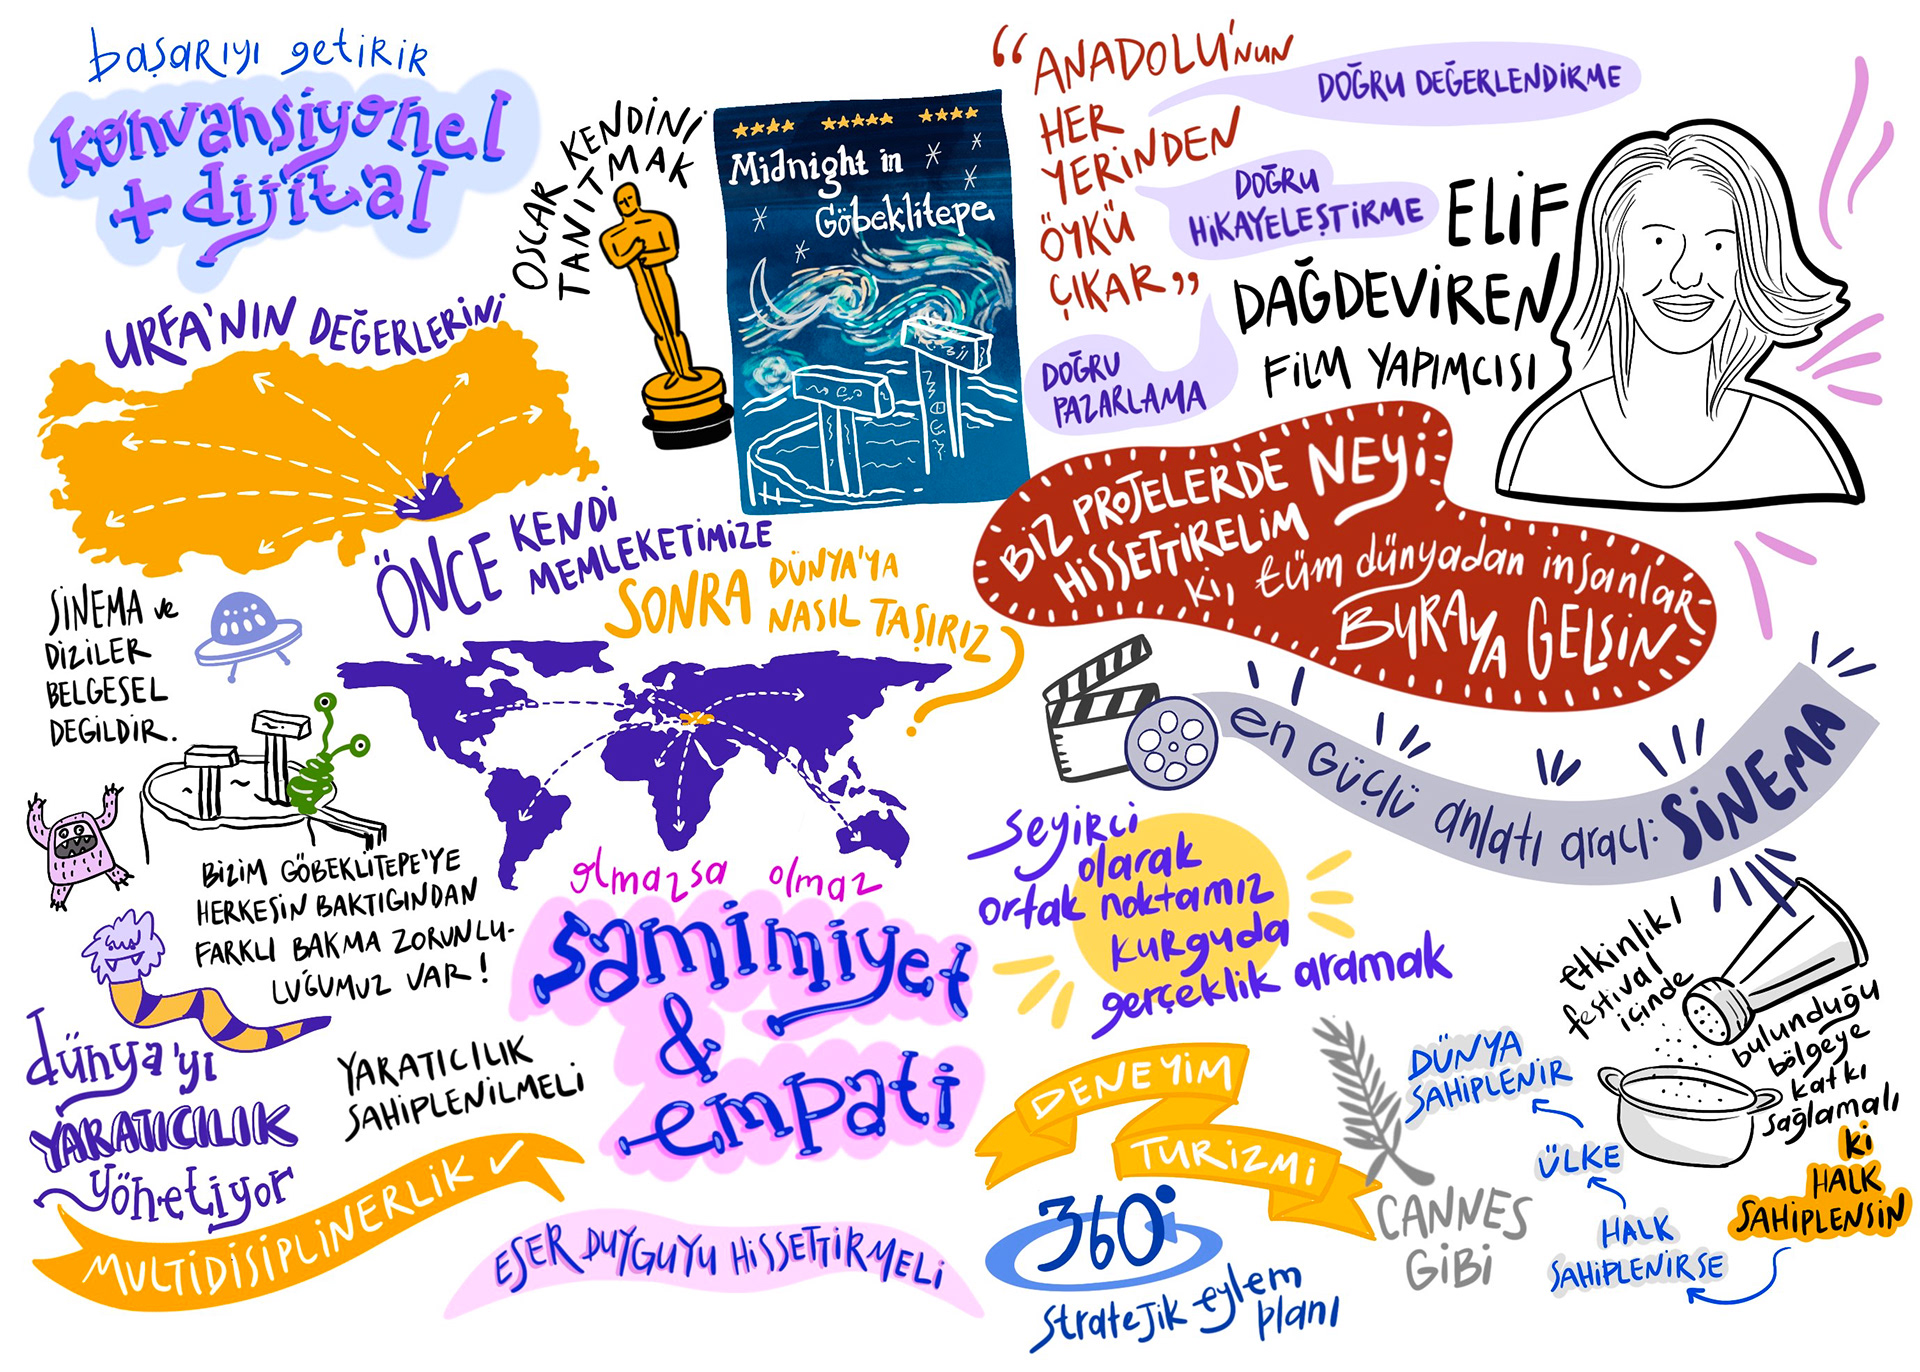 başarıyı getirir
konvansiyonel
+ dijital
OSCAR KENDİNİ
TANITMAK
Midnight in
Göbeklitepe
“ANADOLU'NUN
HER
YERİNDEN
ÖYKÜ
ÇIKAR”
DOĞRU DEĞERLENDİRME
DOĞRU
HİKAYELEŞTİRME
DOĞRU
PAZARLAMA
ELİF
DAĞDEVİREN
FİLM YAPIMCISI
URFA'NIN DEĞERLERİNİ
ÖNCE KENDİ
MEMLEKETİMİZE
SONRA DÜNYA'YA
NASIL TAŞIRIZ?
BİZ PROJELERDE NEYİ
HİSSETTİRELİM
ki, tüm dünyadan insanlar
BURAYA GELSİN
SİNEMA ve
DİZİLER
BELGESEL
DEGİLDİR.
en GÜÇlÜ anlatı aracı: SİNEMA
BİZİM GÖBEKLİTEPE'YE
HERKESİN BAKTIGINDAN
FARKLI BAKMA ZORUNLU-
LUĞUMUZ VAR!
olmazsa olmaz
samimiyet
&
empati
seyirci
olarak
ortak noktamız
kurguda
gerçeklik aramak
etkinlik/
festival
içinde
bulunduğu
bölgeye
katkı
sağlamalı
ki
HALK
SAHİPLENSİN
HALK
SAHİPLENİRSE
ÜLKE
DÜNYA
SAHİPLENİR
dünya'yı
YARATICILIK
yönetiyor
YARATICILIK
SAHİPLENİLMELİ
MULTİDİSİPLİNERLİK ✓
ESER DUYGUYU HİSSETTİRMELİ
DENEYİM
TURİZMİ
360°
stratejik eylem
planı
CANNES
GİBİ